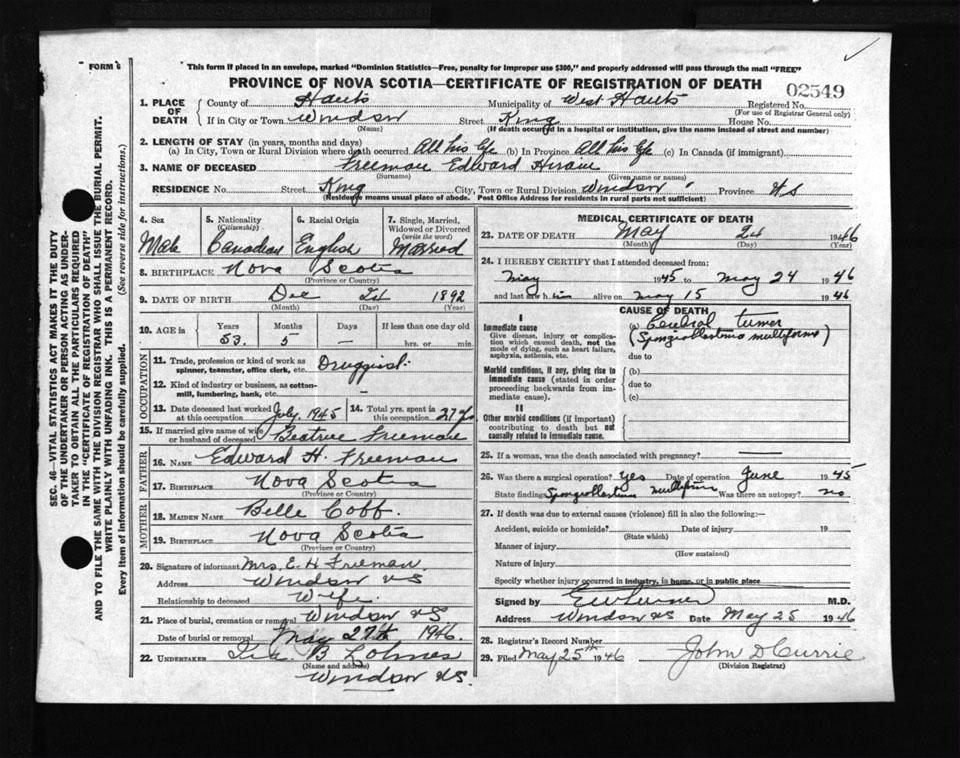 FORM 6
This form if placed in an envelope, marked "Dominion Statistics—Free, penalty for improper use $300," and properly addressed will pass through the mail "FREE"
PROVINCE OF NOVA SCOTIA—CERTIFICATE OF REGISTRATION OF DEATH
02549
1. PLACE OF DEATH
County of Hants Municipality of West Hants Registered No.
(For use of Registrar General only)
If in City or Town Windsor Street King House No.
(Name) (If death occurred in a hospital or institution, give the name instead of street and number)
2. LENGTH OF STAY (in years, months and days)
(a) In City, Town or Rural Division where death occurred All his life (b) In Province All his life (c) In Canada (if immigrant)
3. NAME OF DECEASED Freeman Edward Hiram
(Surname) (Given name or names)
RESIDENCE No. Street King City, Town or Rural Division Windsor Province N S
(Residence means usual place of abode. Post Office Address for residents in rural parts not sufficient)
4. Sex
Male
5. Nationality
(Citizenship)
Canadian
6. Racial Origin
English
7. Single, Married, Widowed or Divorced
(write the word)
Married
8. BIRTHPLACE Nova Scotia
(Province or Country)
9. DATE OF BIRTH Dec 24 1892
(Month) (Day) (Year)
10. AGE in
Years Months Days If less than one day old
53. 5 — hrs. or min.
OCCUPATION
11. Trade, profession or kind of work as spinner, teamster, office clerk, etc. Druggist.
12. Kind of industry or business, as cotton-mill, lumbering, bank, etc. —
13. Date deceased last worked at this occupation July, 1945
14. Total yrs. spent in this occupation 27 yrs
15. If married give name of wife or husband of deceased Beatrice Freeman
FATHER
16. NAME Edward H. Freeman
17. BIRTHPLACE Nova Scotia
(Province or Country)
MOTHER
18. MAIDEN NAME Belle Coff
19. BIRTHPLACE Nova Scotia
(Province or Country)
20. Signature of informant Mrs. E. H Freeman
Address Windsor N S
Relationship to deceased Wife
21. Place of burial, cremation or removal Windsor N S
Date of burial or removal May 27th 1946.
22. UNDERTAKER Ira B Lohnes
(Name and address)
Windsor N S.
MEDICAL CERTIFICATE OF DEATH
23. DATE OF DEATH May 24 1946
(Month) (Day) (Year)
24. I HEREBY CERTIFY that I attended deceased from:
May 1945 to May 24 1946
and last saw him alive on May 15 1946
CAUSE OF DEATH
I
Immediate cause
Give disease, injury or complication which caused death, not the mode of dying, such as heart failure, asphyxia, asthenia, etc.
(a) Cerebral tumor
(Spongioblastoma multiforme)
due to
Morbid conditions, if any, giving rise to immediate cause (stated in order proceeding backwards from immediate cause).
(b)
due to
(c)
II
Other morbid conditions (if important) contributing to death but not causally related to immediate cause.
25. If a woman, was the death associated with pregnancy? —
26. Was there a surgical operation? Yes Date of operation June 1945
State findings Spongioblastoma multiforme Was there an autopsy? no
27. If death was due to external causes (violence) fill in also the following:—
Accident, suicide or homicide? Date of injury 19
(State which)
Manner of injury
(How sustained)
Nature of injury
Specify whether injury occurred in industry, in home, or in public place
Signed by M.D.
Address Windsor N S Date May 25 1946
28. Registrar's Record Number
29. Filed May 25th 1946 John D Currie
(Division Registrar)
SEC. 46—VITAL STATISTICS ACT MAKES IT THE DUTY
OF THE UNDERTAKER OR PERSON ACTING AS UNDER-
TAKER TO OBTAIN ALL THE PARTICULARS REQUIRED
IN THE "CERTIFICATE OF REGISTRATION OF DEATH"
AND TO FILE THE SAME WITH THE DIVISION REGISTRAR WHO SHALL ISSUE THE BURIAL PERMIT.
WRITE PLAINLY WITH UNFADING INK. THIS IS A PERMANENT RECORD.
Every item of information should be carefully supplied. (See reverse side for instructions.)